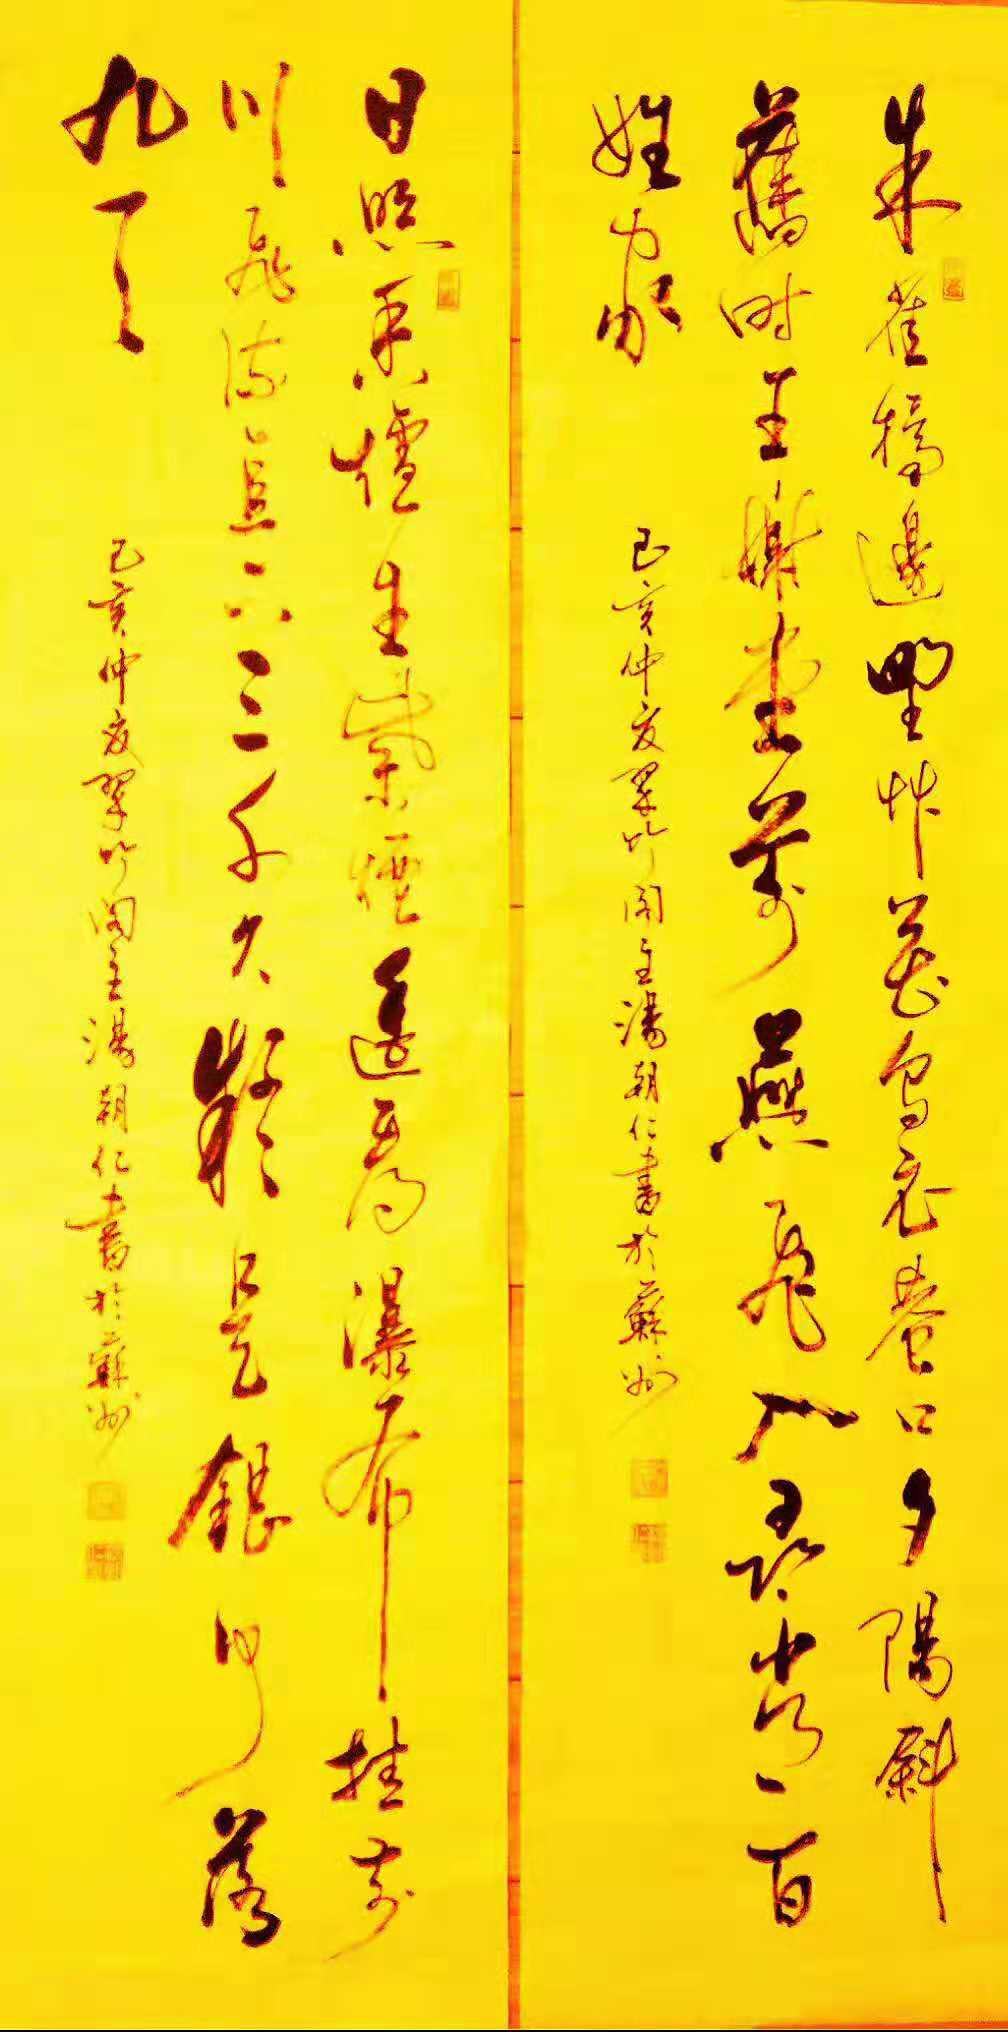 朱雀橋邊野艸花烏衣巷口夕陽斜
舊時王謝堂前燕飛入尋常百
姓家
己亥仲夏翠竹閣主湯朝仁書於蘇州
日照香爐生紫煙遙看瀑布挂前
川飛流直下三千尺疑是銀河落
九天
己亥仲夏翠竹閣主湯朝仁書於蘇州